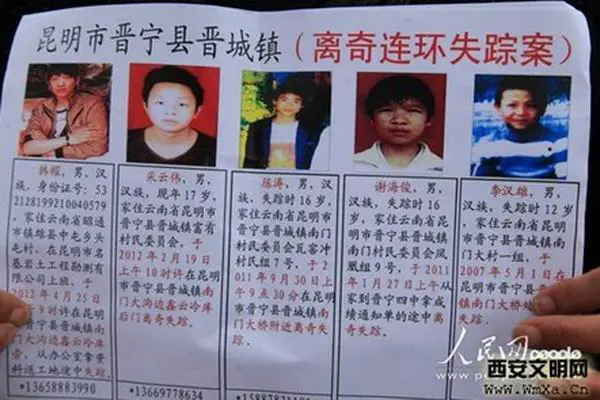 昆明市晋宁县晋城镇（离奇连环失踪案）
韩耀，男，汉
族，身份证号：53
2128199210040579
，家住云南省昭通
市镇雄县中屯乡头
屯村，在昆明市名
基岩土工程勘测有
限公司上班，于
2012年4月25日
9时许在昆
明市晋宁县晋城镇
南门大沟边鑫云冷
库旁，从办公室拿资
料返工地途中失踪。
*13658883990
采云伟，男，
汉族，现年17岁，
家住云南省昆明市
晋宁县晋城镇富有
村民委员会，于
2012年2月19日
上午10时许在昆明
市晋宁县晋城镇南
门大沟边鑫云冷库
后门离奇失踪。
*13669778634
陈涛，男，汉
族，失踪时16岁，
家住云南省昆明市
晋宁县晋城镇南门
村民委员会瓦窑冲
村民组7号，于2
011年9月30日上
午9点30分在昆明
市晋宁县晋城镇南
门大桥附近离奇失
踪。
谢海俊，男，
汉族，失踪时16岁，
家住云南省昆明市
晋宁县晋城镇南门
村民委员会凤
凰组9号，于2011
年1月27日上午从
家到晋宁四中拿成
绩通知单的途中离
奇失踪。
李汉雄，男，
汉族，失踪时12岁，
家住云南省昆明市
晋宁县晋城镇南
门大村一组，于
2007年5月1日在昆
明市晋宁县晋城镇
南门大桥处
失踪。
人民网
people
西安文明网
www.WmXa.Cn